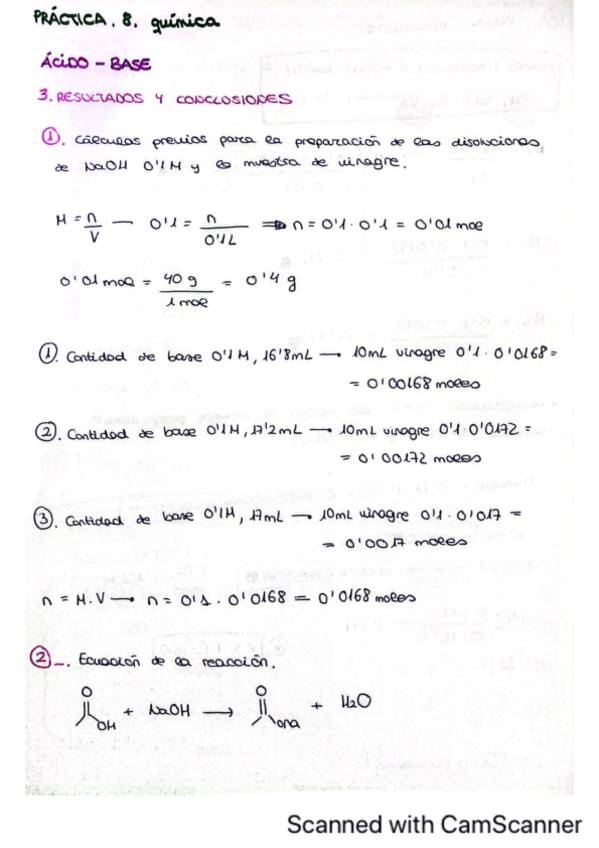 PRÁCTICA. 8. química
ÁCIDO - BASE
3. RESULTADOS Y CONCLUSIONES
①. Cálculos previos para la preparación de las disoluciones
de NaOH 0'1M y la muestra de vinagre.
M = n/V — 0'1 = n/0'1L ⇒ n = 0'1 · 0'1 = 0'01 mol
0'01 mol = 40 g/1 mol = 0'4 g
①. Cantidad de base 0'1M, 16'8mL → 10mL vinagre 0'1 · 0'0168 =
= 0'00168 moles
②. Cantidad de base 0'1M, 17'2mL → 10mL vinagre 0'1 · 0'0172 =
= 0'00172 moles
③. Cantidad de base 0'1M, 17mL → 10mL vinagre 0'1 · 0'017 =
= 0'0017 moles
n = M.V → n = 0'1 . 0'0168 = 0'0168 moles
②-. Ecuación de la reacción.
O OH + NaOH → O ONa + H₂O
Scanned with CamScanner